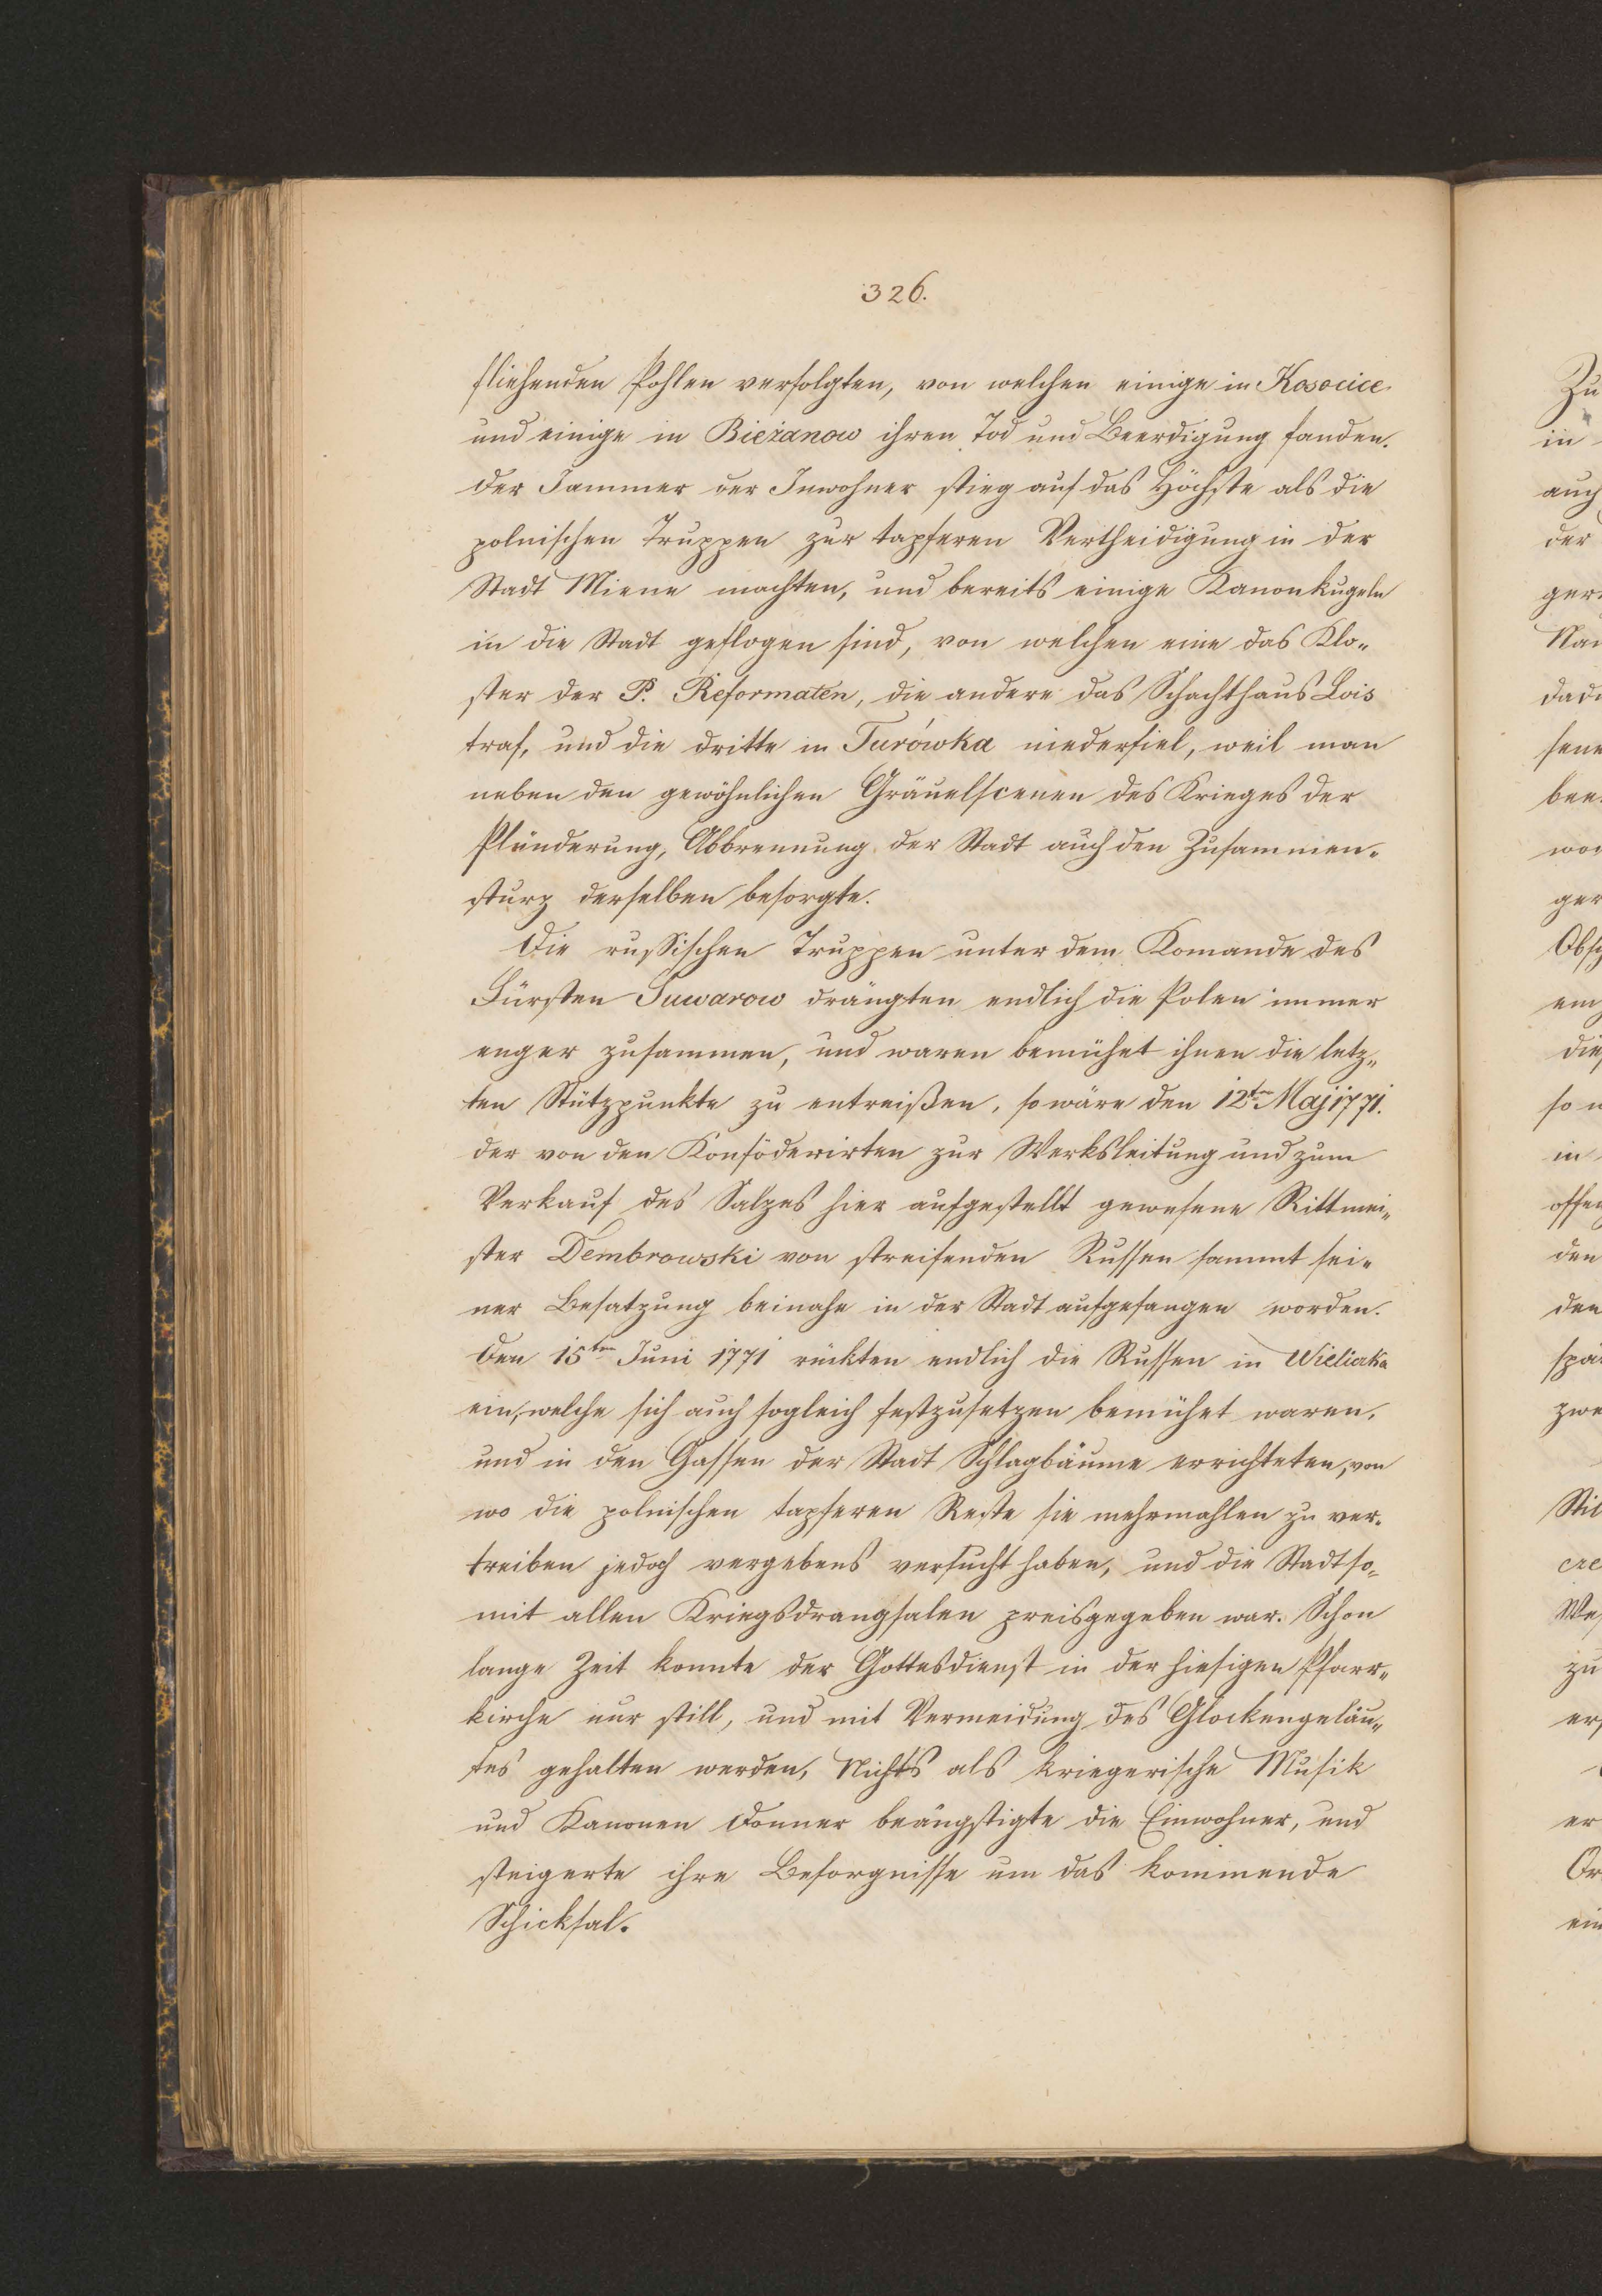 326.
fliehenden Pohlen verfolgten, von welchen einige in Kosocice
und einige in Bieżanow ihren Tod und Beerdigung fanden.
Der Jammer der Inwohner stieg auf das Höchste als die
polnischen Truppen zur tapferen Vertheidigung in der
Stadt Miene machten, und bereits einige Kanonkugeln
in die Stadt geflogen sind, von welchen eine das Klo„
ster der P. Reformaten, die andere das Schachthaus Lois
traf, und die dritte in Turówka niederfiel, weil man
neben den gewöhnlichen Gräuelscenen des Krieges der
Plünderung, Abbrennung der Stadt auch den Zusammen„
sturz derselben besorgte.
Die russischen Truppen unter dem Komande des
Fürsten Suwarow drängten endlich die Polen immer
enger zusammen, und waren bemühet ihnen die letz„
ten Stützpunkte zu entreißen, so wäre den 12ten Maj 1771.
der von den Konföderirten zur Werksleitung und zum
Verkauf des Salzes hier aufgestellt gewesene Rittmei„
ster Dembrowski von streifenden Russen sammt sei„
ner Besatzung beinahe in der Stadt aufgefangen worden.
Den 15ten Juni 1771 rückten endlich die Russen in Wieliczka
ein, welche sich auch sogleich festzusetzen bemühet waren,
und in den Gassen der Stadt Schlagbäume errichteten, von
wo die polnischen tapferen Reste sie mehrmahlen zu ver„
treiben jedoch vergebens versucht haben, und die Stadt so„
mit allen Kriegsdrangsalen preisgegeben war. Schon
lange Zeit konnte der Gottesdienst in der hiesigen Pfarr„
kirche nur still, und mit Vermeidung des Glockengeläu„
tes gehalten werden, Nichts als kriegerische Musik
und Kanonen Donner beängstigte die Einwohner, und
steigerte ihre Besorgnisse um das kommende
Schicksal.
Zu
in
auch
der